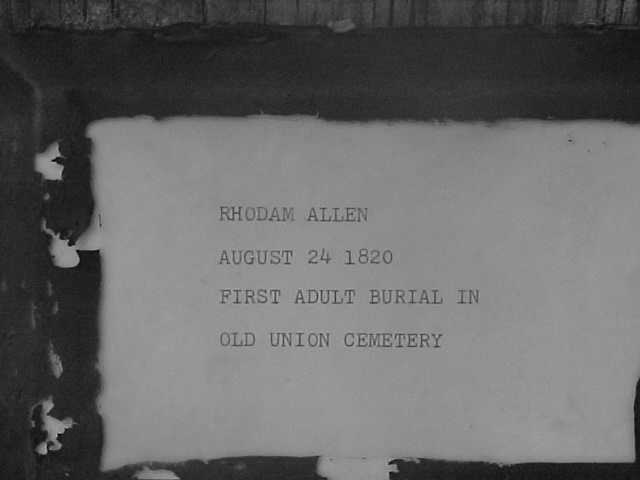 RHODAM ALLEN
AUGUST 24 1820
FIRST ADULT BURIAL IN
OLD UNION CEMETERY